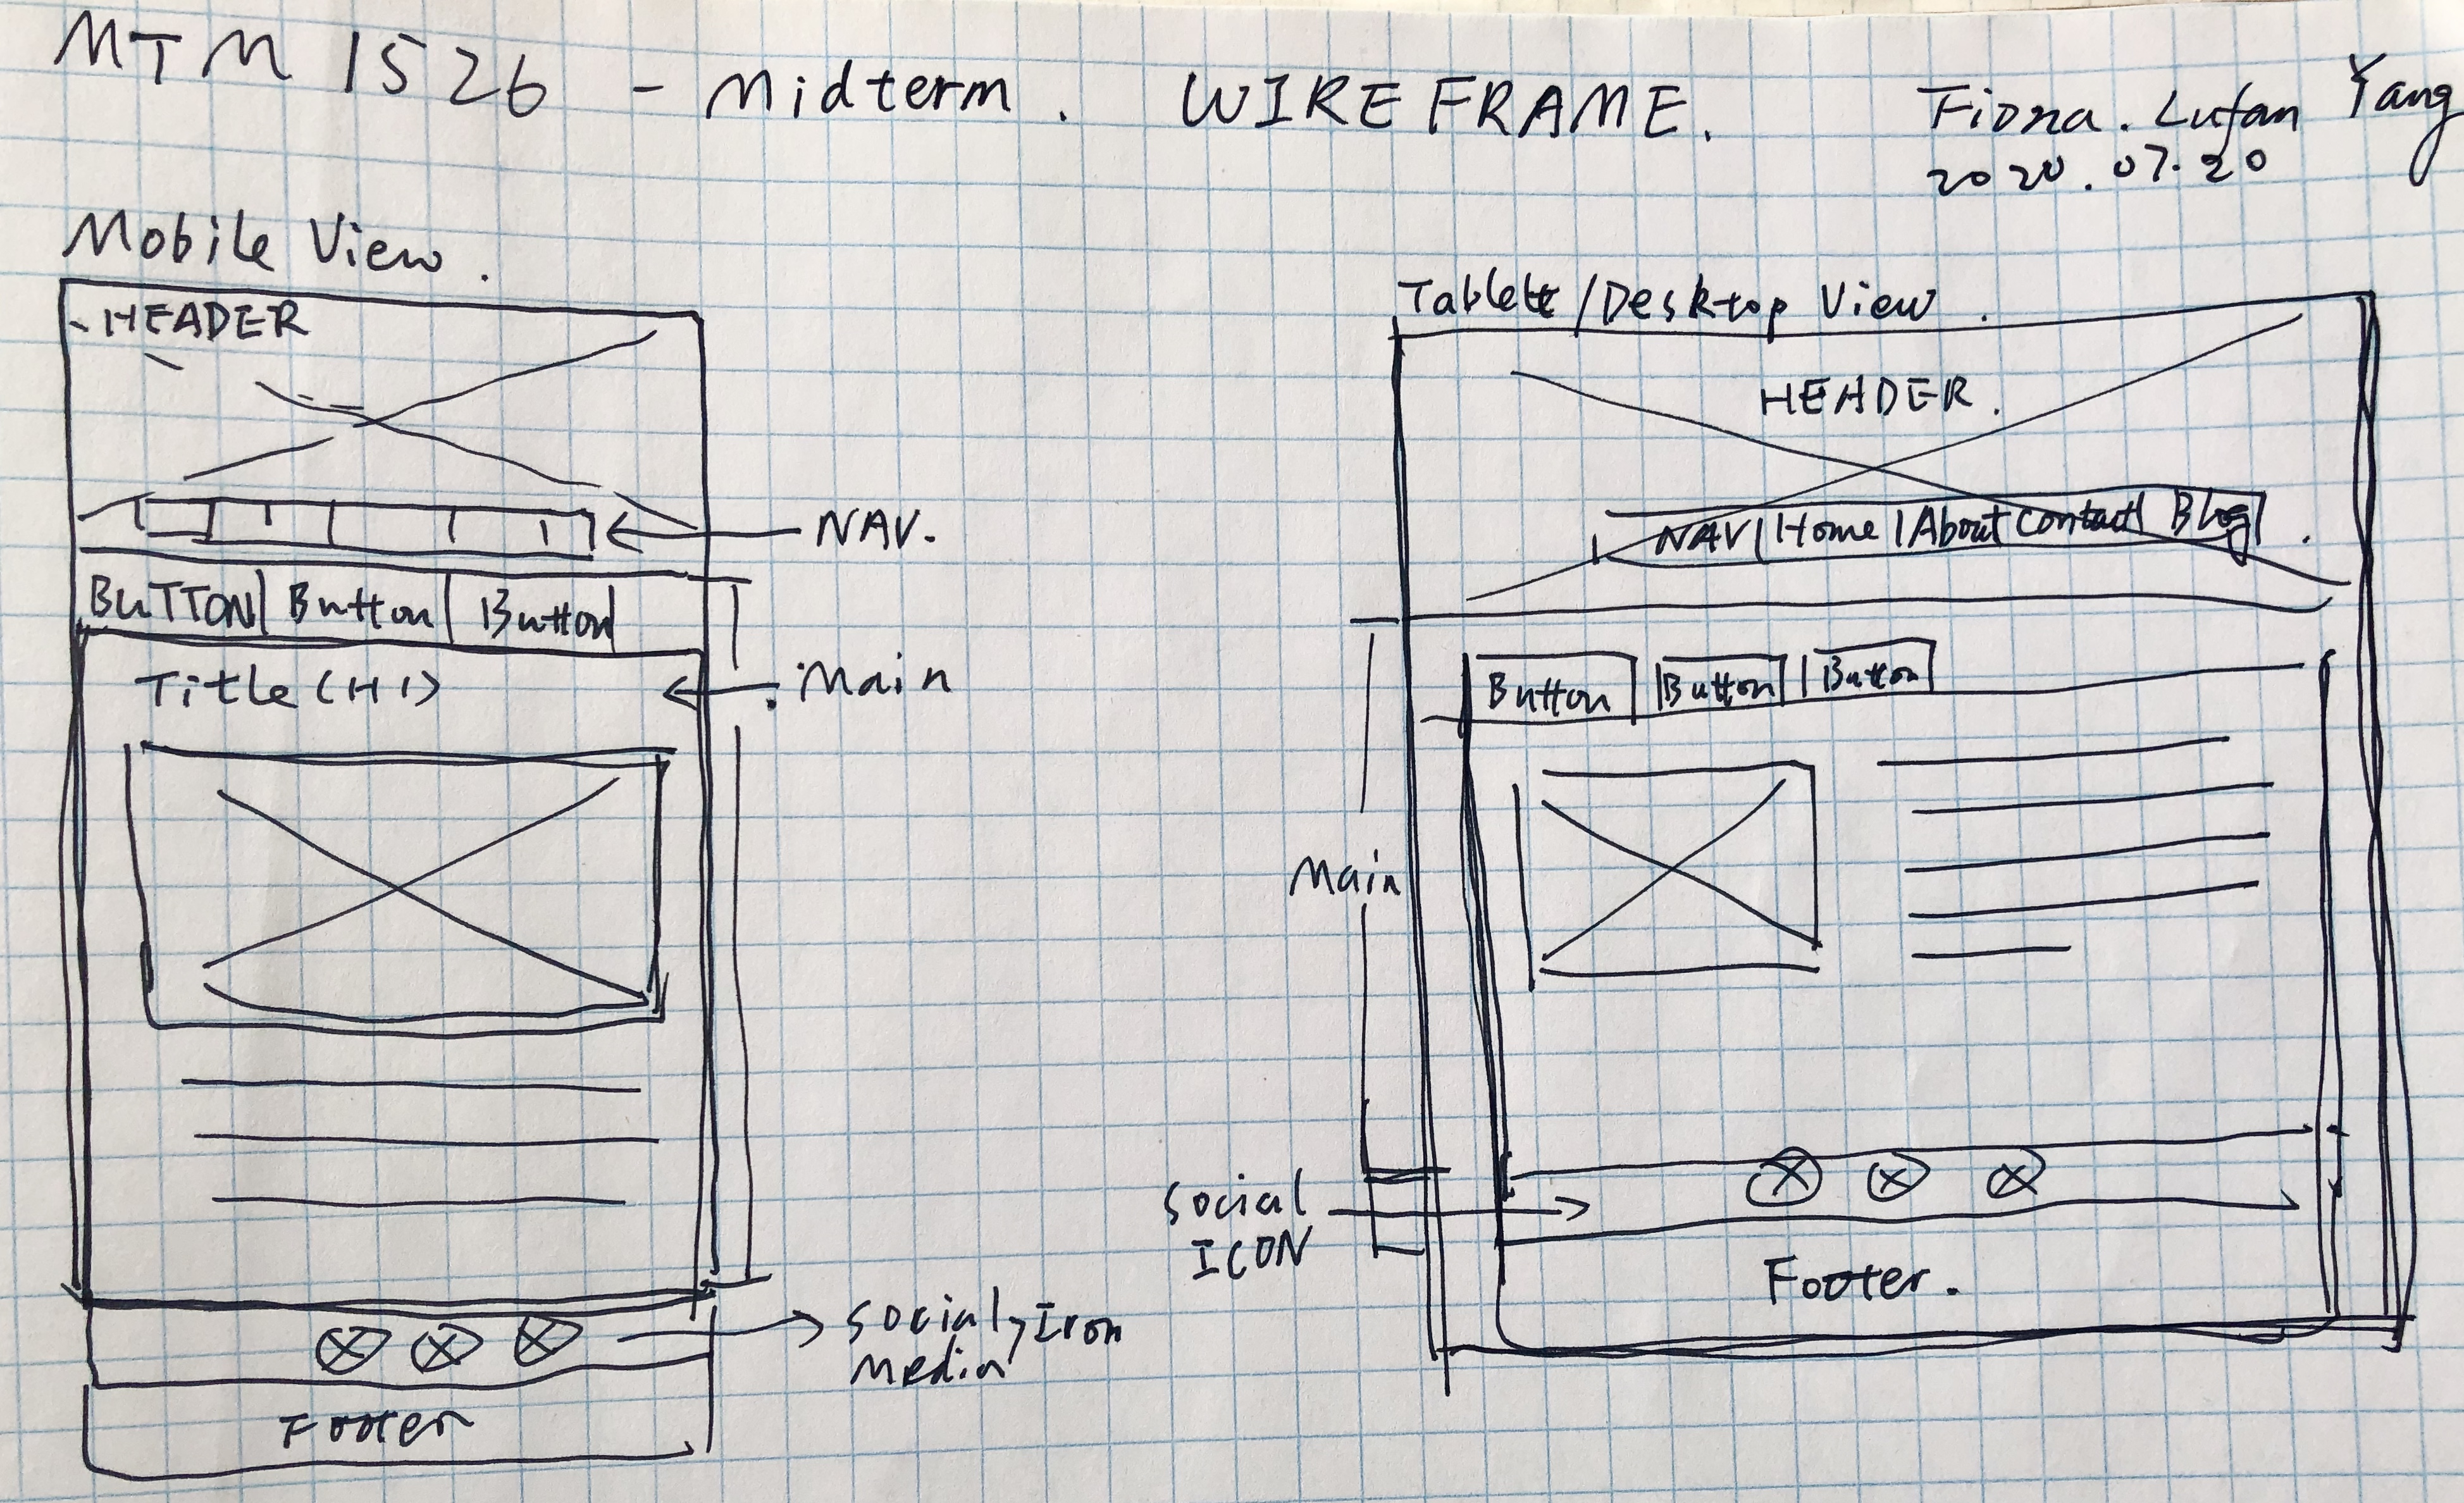 MTM 1526 - Midterm. WIREFRAME.
Fiona. Lufan Yang
2020.07.20
Mobile View.
HEADER
NAV.
BUTTON Button Button
Title (H1)
Main
Social Media, Iron
Footer
Tablett/Desktop View.
HEADER.
NAV | Home | About contact Blog
Button Button Button
Main
Social
ICON
Footer.